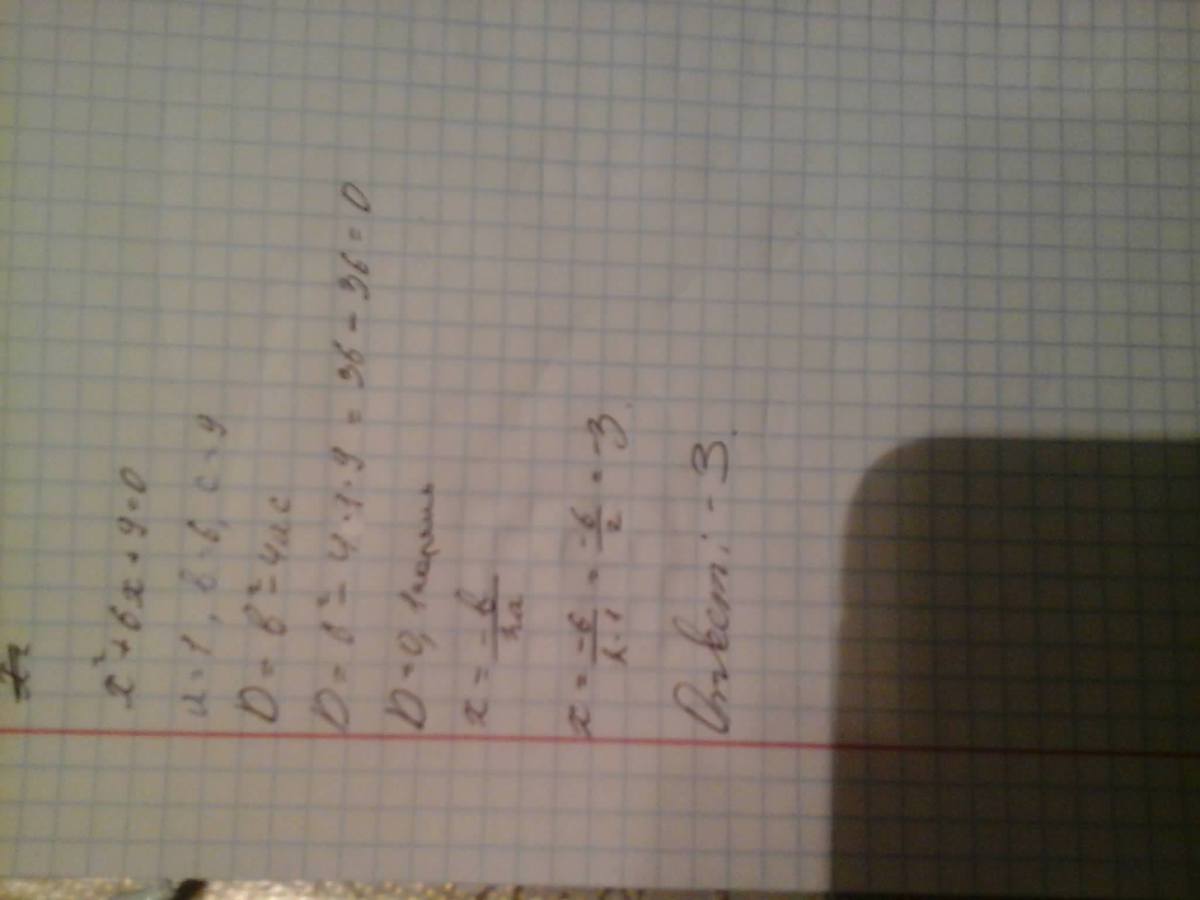 x² + 6x + 9 = 0
a = 1, в = 6, c = 9
D = в² - 4ac
D = 6² - 4·1·9 = 36 - 36 = 0
D = 0, 1 корень
x = -в/2a
x = -6/2·1 = -6/2 = -3.
Ответ: -3.